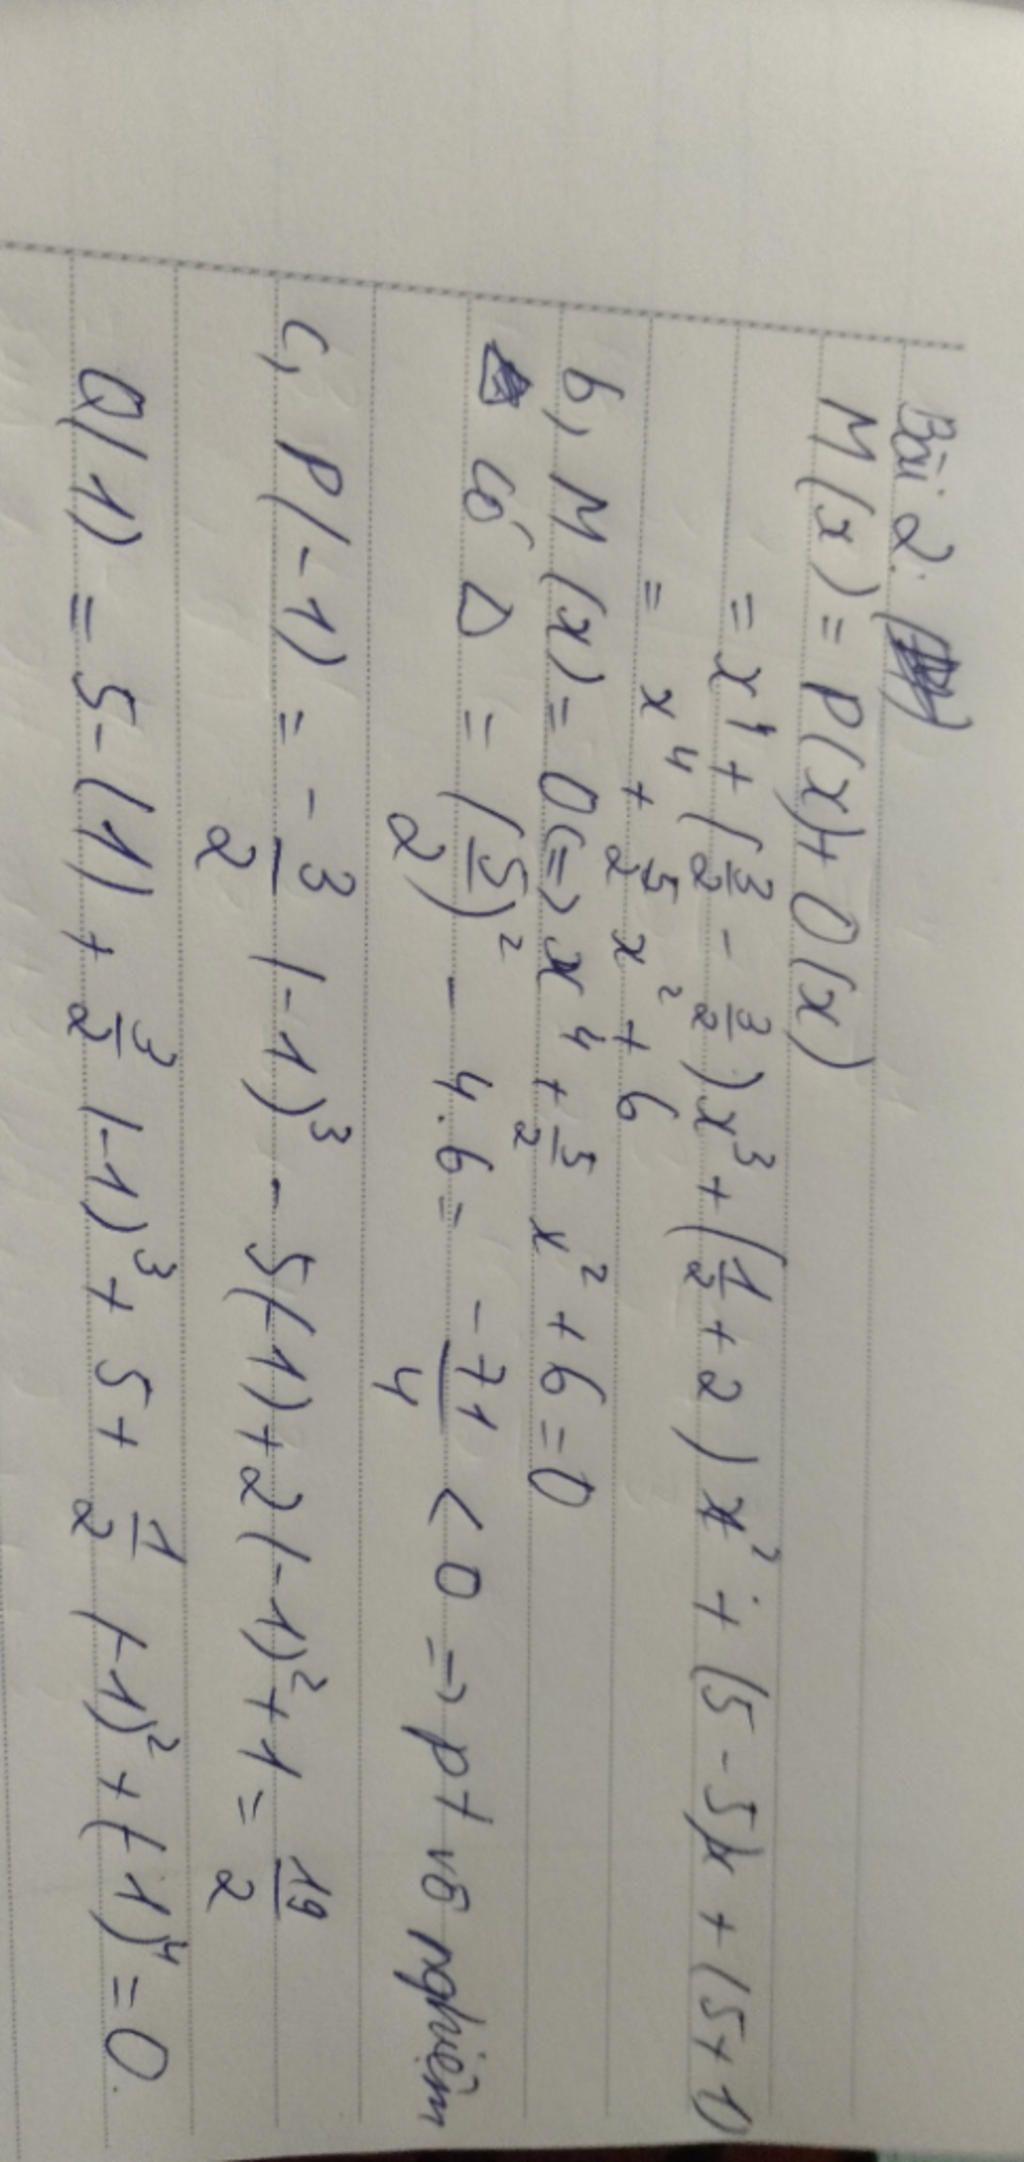 Bài 2:
M(x) = P(x) + Q(x)
= x⁴ + (3/2 - 3/2)x³ + (1/2 + 2)x² + (5 - 5)x + (5+1)
= x⁴ + 5/2 x² + 6
b, M(x) = 0 <=> x⁴ + 5/2 x² + 6 = 0
Có Δ = (5/2)² - 4.6 = -71/4 < 0 => pt vô nghiệm
c, P(-1) = -3/2 (-1)³ - 5(-1) + 2(-1)² + 1 = 19/2
Q(1) = 5 - (1) + 3/2 (-1)³ + 5 + 1/2 (-1)² + (-1)⁴ = 0.